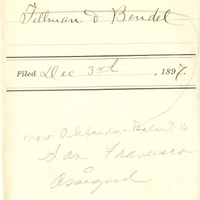 Tillman & Bendel
Filed Dec 3rd, 1897.
now Alexander-Balart Co
San Francisco
assigned